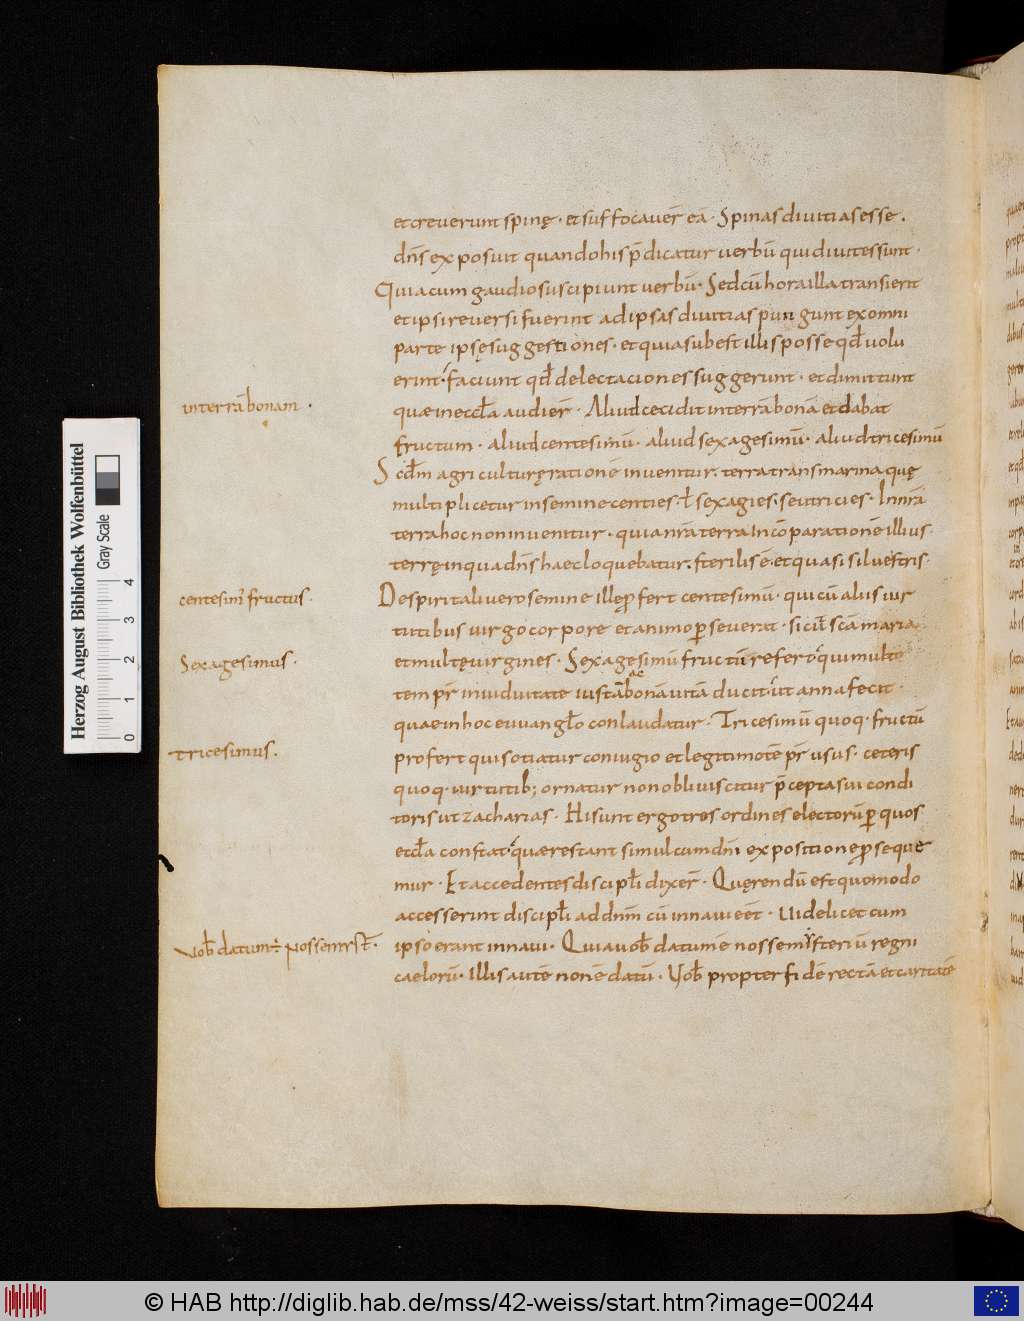 et creverunt spinę · et suffocaver̄ ea · Spinas divitias esse .
dn̄s exposuit quando his p̄dicatur verbū qui divites sunt ·
Quia cum gaudio suscipiunt verbū · Sed cū hora illa transierit
et ipsi reversi fuerint ad ipsas divitias pungunt ex omni
parte ipsę suggestiones · et quia subest illis posse qd̄ volu
erint · faciunt qd̄ delectaciones suggerunt · et dimittunt
interrā bonam ·
quæ in eccl̄a audier̄ · Aliud cecidit in terrā bonā et dabat
fructum · aliud centesimū · aliud sexagesimū · aliud tricesimū
Scd̄m agriculturę rationē invenitur . terra transmarina quę
multiplicetur in semine centies · ł sexagies . seu tricies · In nr̄a
terra hoc non invenitur · quia nr̄a terra Incōparationē illius
terrę in qua dn̄s haec loquebatur . sterilis ē · et quasi silvestris ·
centesim' fructus ·
De spiritali vero semine ille ꝓfert centesimū · qui cū aliis vir
tutibus virgo corpore et animo ꝑseverat · sicut̄ sc̄a maria
Sexagesimus ·
et multę virgines · Sexagesimū fructū refert · qui multo
ac
tempr̄ in viduitate iustā bonā vitā ducit · ut anna fecit ·
quae in hoc euuangl̄o conlaudatur · Tricesimū quoq · fructū
tricesimus .
profert qui sotiatur coniugio et legitimo tēpr̄ usus · ceteris
quoq · virtutib; ornatur non obliviscitur p̄cepta sui condi
toris ut zacharias · Hi sunt ergo tres ordines electorū ꝑ quos
et cl̄a constat · quæ restant simul cum dni expositione ꝓseque
mur · Et accedentes discipl̄i dixer̄ · Quęrendū est quomodo
accesserint discipl̄i ad dnm cū in navi eēt · Videlicet cum
vob̄ datum · nosse mist̄ ·
ipso erant in navi · Quia vob̄ datum ē nosse mysteriū regni
caelorū · Illis autē non ē datū · Vob̄ propter fidē rectā et caritatē
Herzog August Bibliothek Wolfenbüttel
Gray Scale
0 1 2 3 4
© HAB http://diglib.hab.de/mss/42-weiss/start.htm?image=00244